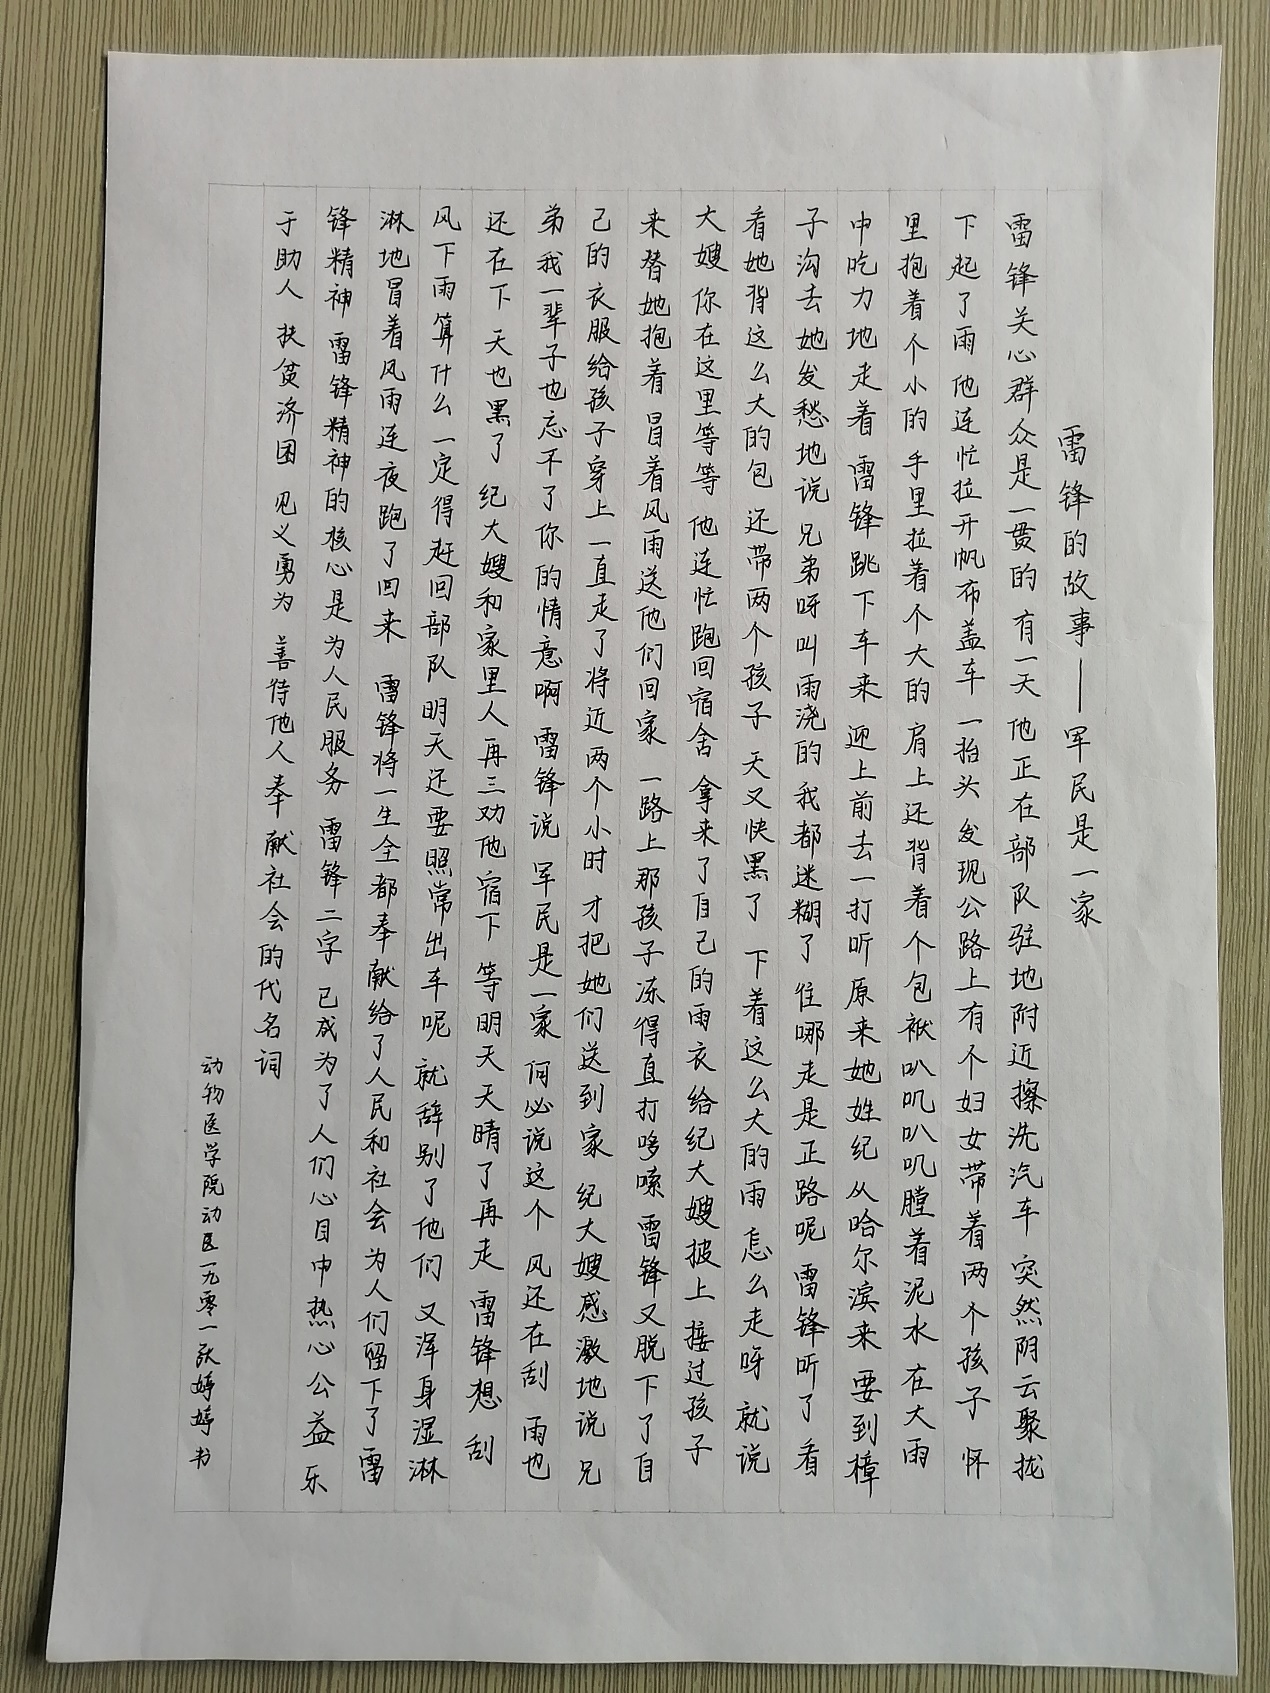 雷锋的故事——军民是一家
雷锋关心群众是一贯的 有一天他正在部队驻地附近擦洗汽车 突然阴云聚拢
下起了雨他连忙拉开帆布盖车 一抬头 发现公路上有个妇女带着两个孩子 怀
里抱着个小的手里拉着个大的 肩上还背着个包袱叭叽叭叽膛着泥水在大雨
中吃力地走着 雷锋跳下车来 迎上前去一打听原来她姓纪 从哈尔滨来 要到樟
子沟去她发愁地说 兄弟呀叫雨浇的 我都迷糊了 往哪走是正路呢 雷锋听了 看
看她背这么大的包 还带两个孩子 天又快黑了 下着这么大的雨 怎么走呀 就说
大嫂你在这里等等 他连忙跑回宿舍 拿来了自己的雨衣给纪大嫂披上 接过孩子
来替她抱着 冒着风雨送他们回家 一路上那孩子冻得直打哆嗦 雷锋又脱下了自
己的衣服给孩子穿上一直走了将近两个小时 才把她们送到家 纪大嫂感激地说 兄
弟我一辈子也忘不了你的情意啊 雷锋说 军民是一家 何必说这个 风还在刮 雨也
还在下 天也黑了 纪大嫂和家里人再三劝他宿下 等明天天晴了再走 雷锋想 刮
风下雨算什么 一定得赶回部队 明天还要照常出车呢 就辞别了他们 又浑身湿淋
淋地冒着风雨连夜跑了回来 雷锋将一生全都奉献给了人民和社会为人们留下了雷
锋精神 雷锋精神的核心是为人民服务 雷锋二字 已成为了人们心目中热心公益乐
于助人 扶贫济困 见义勇为 善待他人奉献社会的代名词
动物医学院动医一九零一张婷婷书